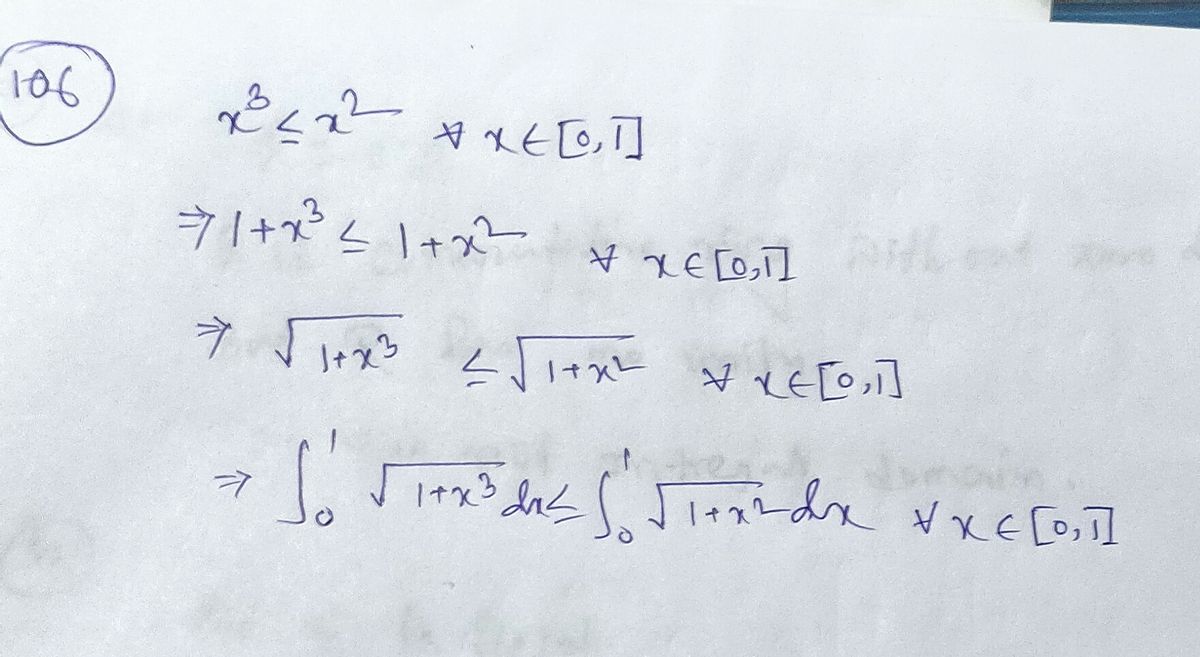 106
x³ ≤ x² ∀ x ∈ [0,1]
⇒ 1+x³ ≤ 1+x² ∀ x ∈ [0,1]
⇒ √(1+x³) ≤ √(1+x²) ∀ x ∈ [0,1]
⇒ ∫₀¹ √(1+x³) dx ≤ ∫₀¹ √(1+x²) dx ∀ x ∈ [0,1]